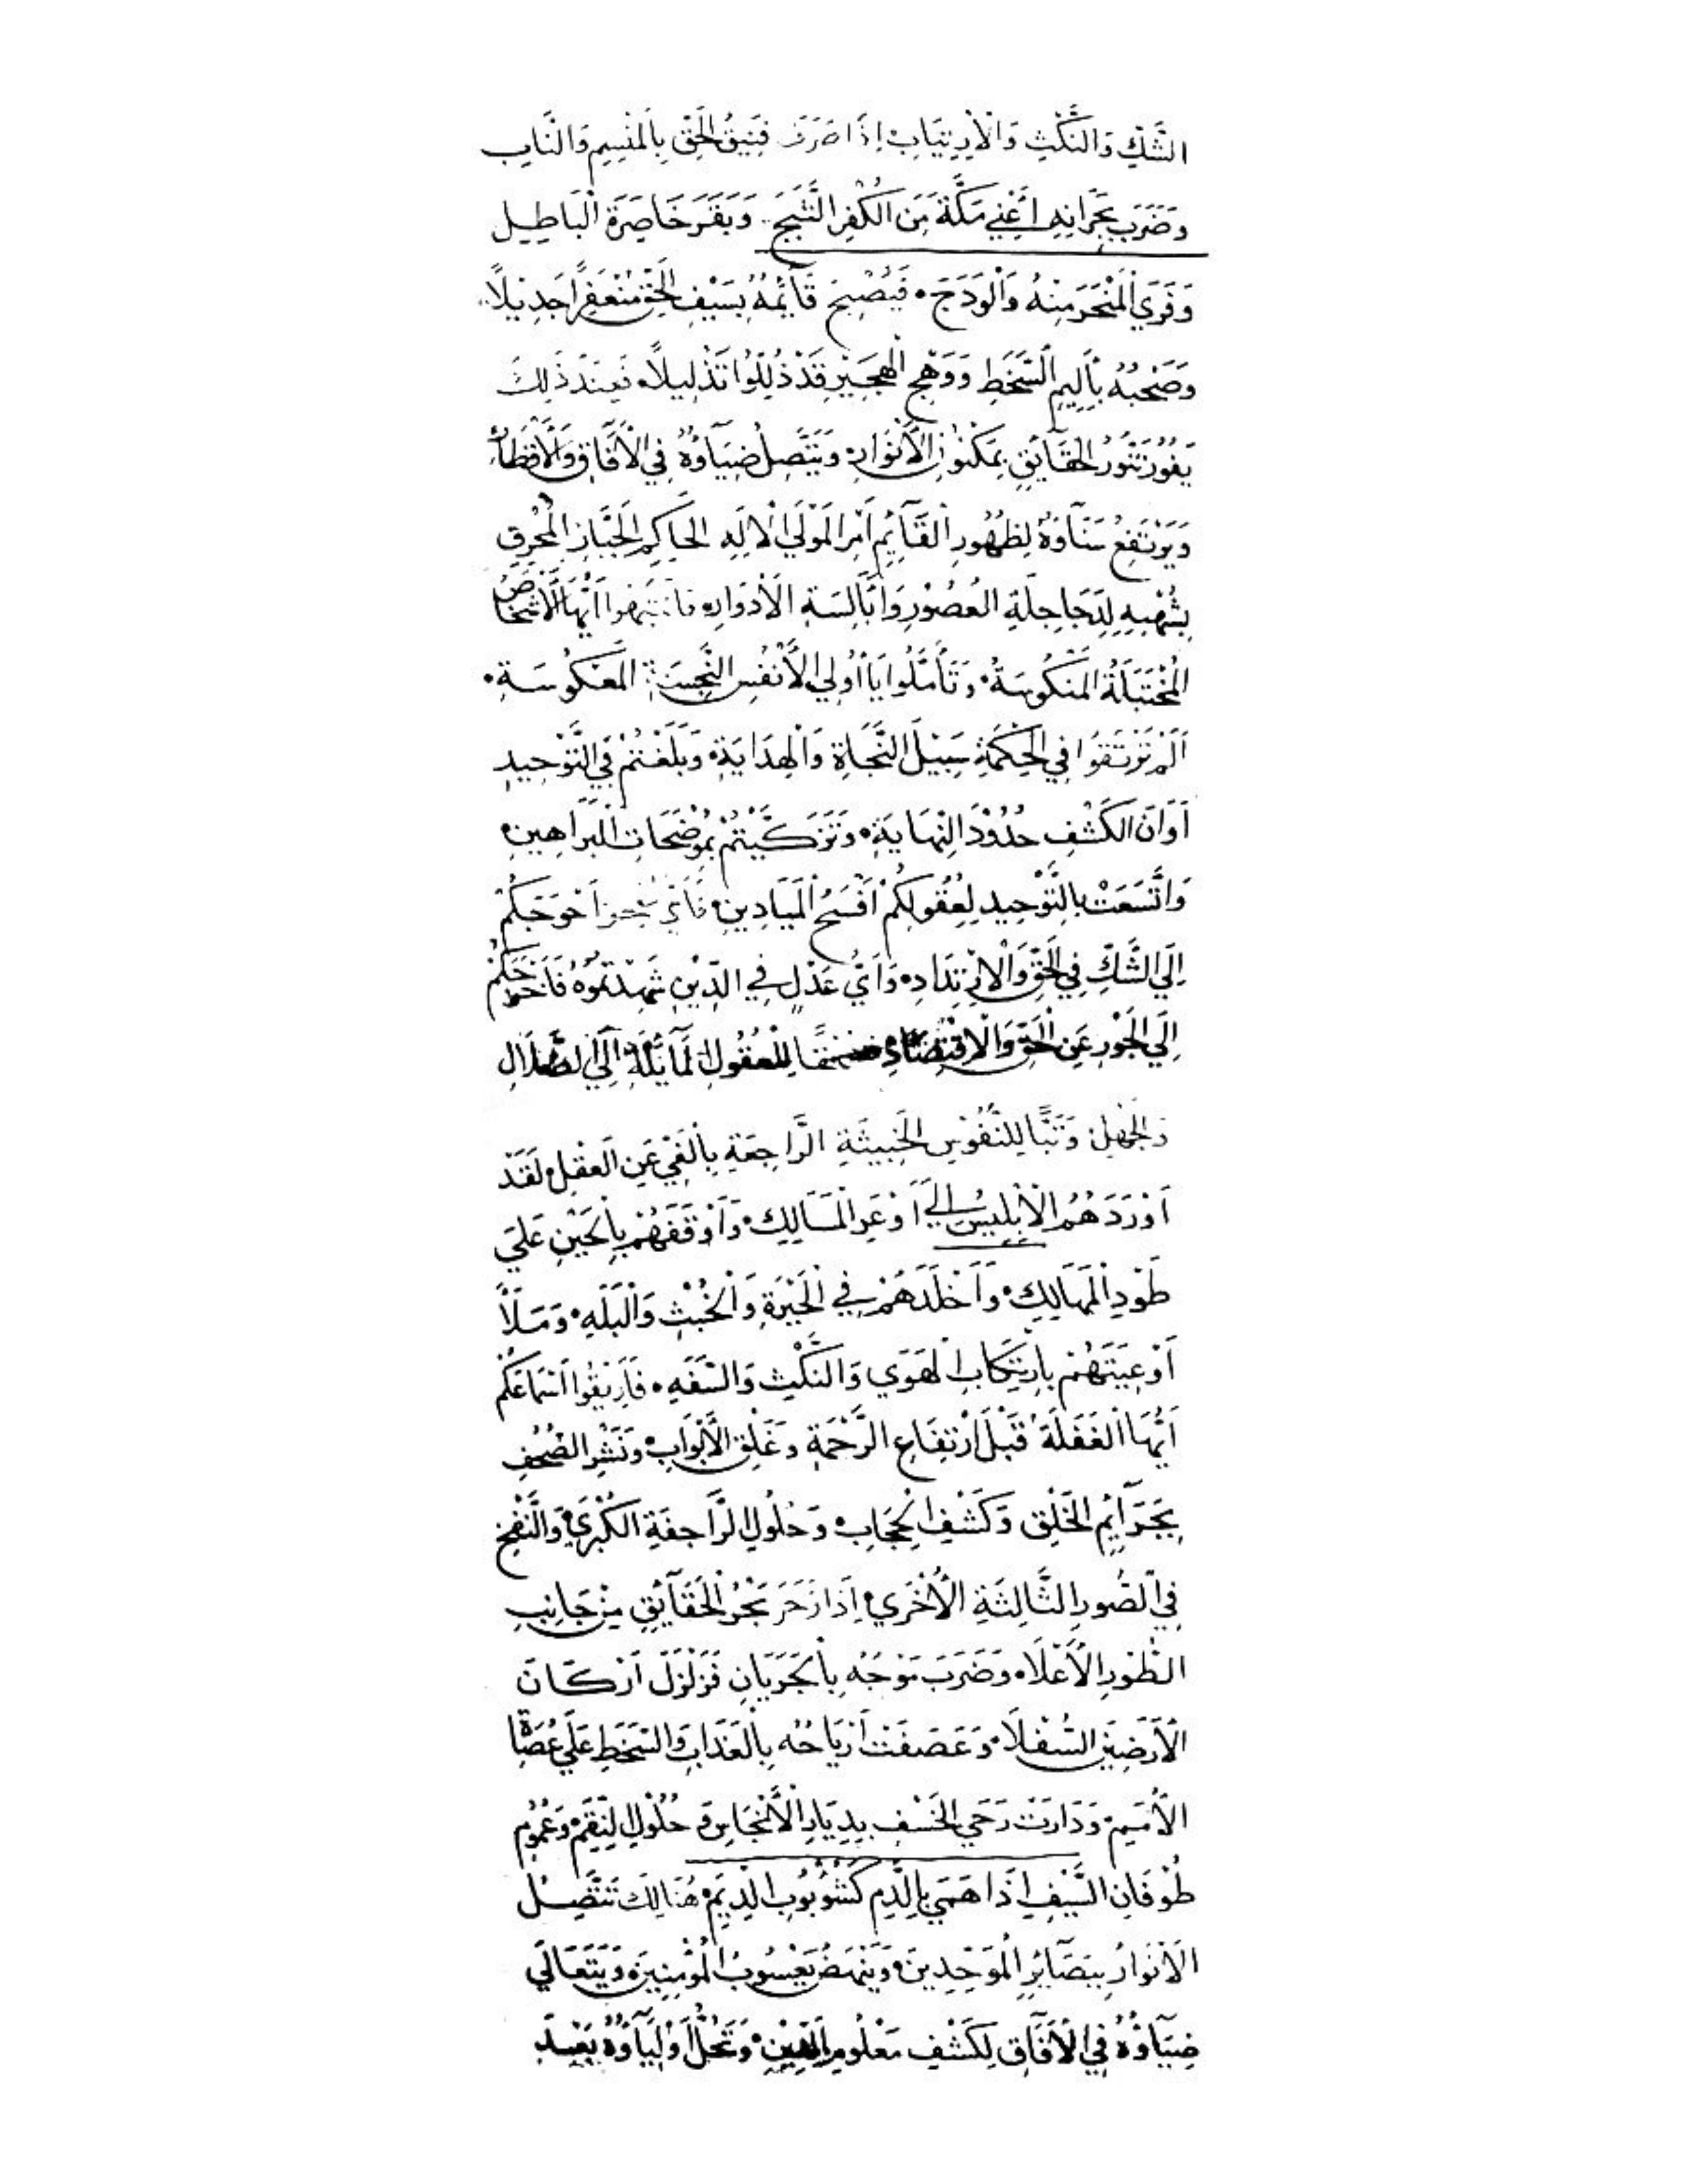 الشَّكِّ وَالنَّكْثِ وَالْاِرْتِيَابِ اِذَا صَرَفَ فَنِيقُ الْحَقِّ بِالْمَنْسِمِ وَالنَّابِ
وَضَرَبَ بِجِرَانِهِ اَعْنِي مَكَّةَ مِنَ الْكُفْرِ الثَّبَجَ. وَبَقَرَ خَاصِرَةَ الْبَاطِلِ
وَفَرَي الْمَنْحَرَ مِنْهُ وَالْوَدَجَ • فَيُصْبِحُ قَآئِمُهُ بِسَيْفِ الْحَقِّ مُنْعَفِرًا جَدِيلًا.
وَصَحْبُهُ بِأَلِيمِ السَّخَطِ وَوَهْجِ الْهَجِيْرِ قَدْ ذُلِّلُوا تَذْلِيلًا • فَعِنْدَ ذَلِكَ
يَفُوْرُ تَنُّوْرُ الْحَقَآئِقِ بِمَكْنُوْنِ الْأَنْوَارِ • وَيَتَّصِلُ ضِيَآؤُهُ فِي الْآفَاقِ وَالْأَقْطَارِ
وَيَرْتَفِعُ سَنَآؤُهُ لِظُهُوْرِ الْقَآئِمِ اَمْرِ الْمَوْلَي الْاِلَهِ الْحَاكِمِ الْجَبَّارِ الْمُحْرِقِ
بِشُهْبِهِ لِدَجَاجِلَةِ الْعُصُوْرِ وَاَبَالِسَةِ الْأَدْوَارِ • فَانْتَبِهُوا اَيُّهَا الْأَشْخَاصُ
الْمُخْتَبَلَةُ الْمَنْكُوسَةُ • وَتَأَمَّلُوا يَا اُولِي الْأَنْفُسِ النَّجِسَةِ الْمَعْكُوسَةِ •
اَلَمْ تَرْتَقُوا فِي الْحِكْمَةِ سَبِيْلَ النَّجَاةِ وَالْهِدَايَةِ • وَبَلَغْتُمْ فِي التَّوْحِيدِ
اَوَانَ الْكَشْفِ حُدُوْدَ النِّهَايَةِ • وَتَزَكَّيْتُمْ بِمُوْضَحَاتِ الْبَرَاهِينِ •
وَاتَّسَعَتْ بِالتَّوْحِيدِ لِعُقُولِكُمْ اَفْسَحُ الْمَيَادِينِ • فَاَيُّ اَحْوَجَكُمْ
اِلَي الشَّكِّ فِي الْحَقِّ وَالْاِرْتِدَادِ • وَاَيُّ عَدْلٍ فِي الدِّيْنِ شَهِدْتُمُوْهُ فَاَخْرَجَكُمْ
اِلَي الْجَوْرِ عَنِ الْحَقِّ وَالْاِقْتِصَادِ • فَسُحْقًا لِلْعُقُولِ الْمَآئِلَةِ اِلَي الضَّلَالِ
وَالْجَهْلِ • وَتَبًّا لِلنُّفُوْسِ الْخَبِيثَةِ الرَّاجِعَةِ بِالْغَيِّ عَنِ الْعَقْلِ • لَقَدْ
اَوْرَدَهُمُ الْاِبْلِيسُ اِلَي اَوْعَرِ الْمَسَالِكِ • وَاَوْقَفَهُمْ بِالْحَيْنِ عَلَي
طَوْدِ الْمَهَالِكِ • وَاَخْلَدَهُمْ فِي الْحَيْرَةِ وَالْخُبْثِ وَالْبَلَهِ • وَمَلَأَ
اَوْعِيَتَهُمْ بِارْتِكَابِ الْهَوَي وَالنَّكْثِ وَالسَّفَهِ • فَاَرِيْقُوا اَسْمَاعَكُمْ
اَيُّهَا الْغَفَلَةُ قَبْلَ ارْتِفَاعِ الرَّحْمَةِ وَغَلْقِ الْأَبْوَابِ • وَنَشْرِ الصُّحُفِ
بِجَرَآئِمِ الْخَلْقِ وَكَشْفِ الْحِجَابِ • وَحُلُولِ الرَّاجِفَةِ الْكُبْرَي • وَالنَّفْخِ
فِي الصُّورِ الثَّالِثَةِ الْأُخْرَي • اِذَا زَخَرَ بَحْرُ الْحَقَآئِقِ مِنْ جَانِبِ
الطَّوْرِ الْأَعْلَا • وَضَرَبَ مَوْجُهُ بِالْجَرَيَانِ فَزَلْزَلَ اَرْكَانَ
الْأَرَضِيْنَ السُّفْلَا • وَعَصَفَتْ اَرْيَاحُهُ بِالْعَذَابِ وَالسَّخَطِ عَلَي عُصَاةِ
الْأُمَمِ • وَدَارَتْ رَحَي الْخَسْفِ بِدِيَارِ الْأَنْجَاسِ وَ حُلُوْلِ النِّقَمِ • وَعُمُوْمِ
طُوْفَانِ السَّيْفِ اِذَا هَمَي بِالدَّمِ كَشُؤْبُوْبِ الدِّيَمِ • هُنَالِكَ تَتَّصِلُ
الْأَنْوَارُ بِبَصَآئِرِ الْمُوَحِّدِينَ • وَيَنْهَضُ يَعْسُوبُ الْمُؤْمِنِيْنَ • وَيَتَعَالَي
ضِيَآؤُهُ فِي الْآفَاقِ لِكَشْفِ مَعْلُومِ الدِّيْنِ • وَتَحُلُّ اَوْلِيَآؤُهُ بَعْدَ